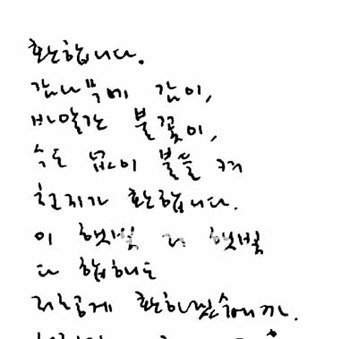 환합니다.
감나무에 감이,
바알간 불꽃이,
수도 없이 불을 켜
천지가 환합니다.
이 햇빛 저 햇빛
다 합해도
저렇게 환하겠습니까.